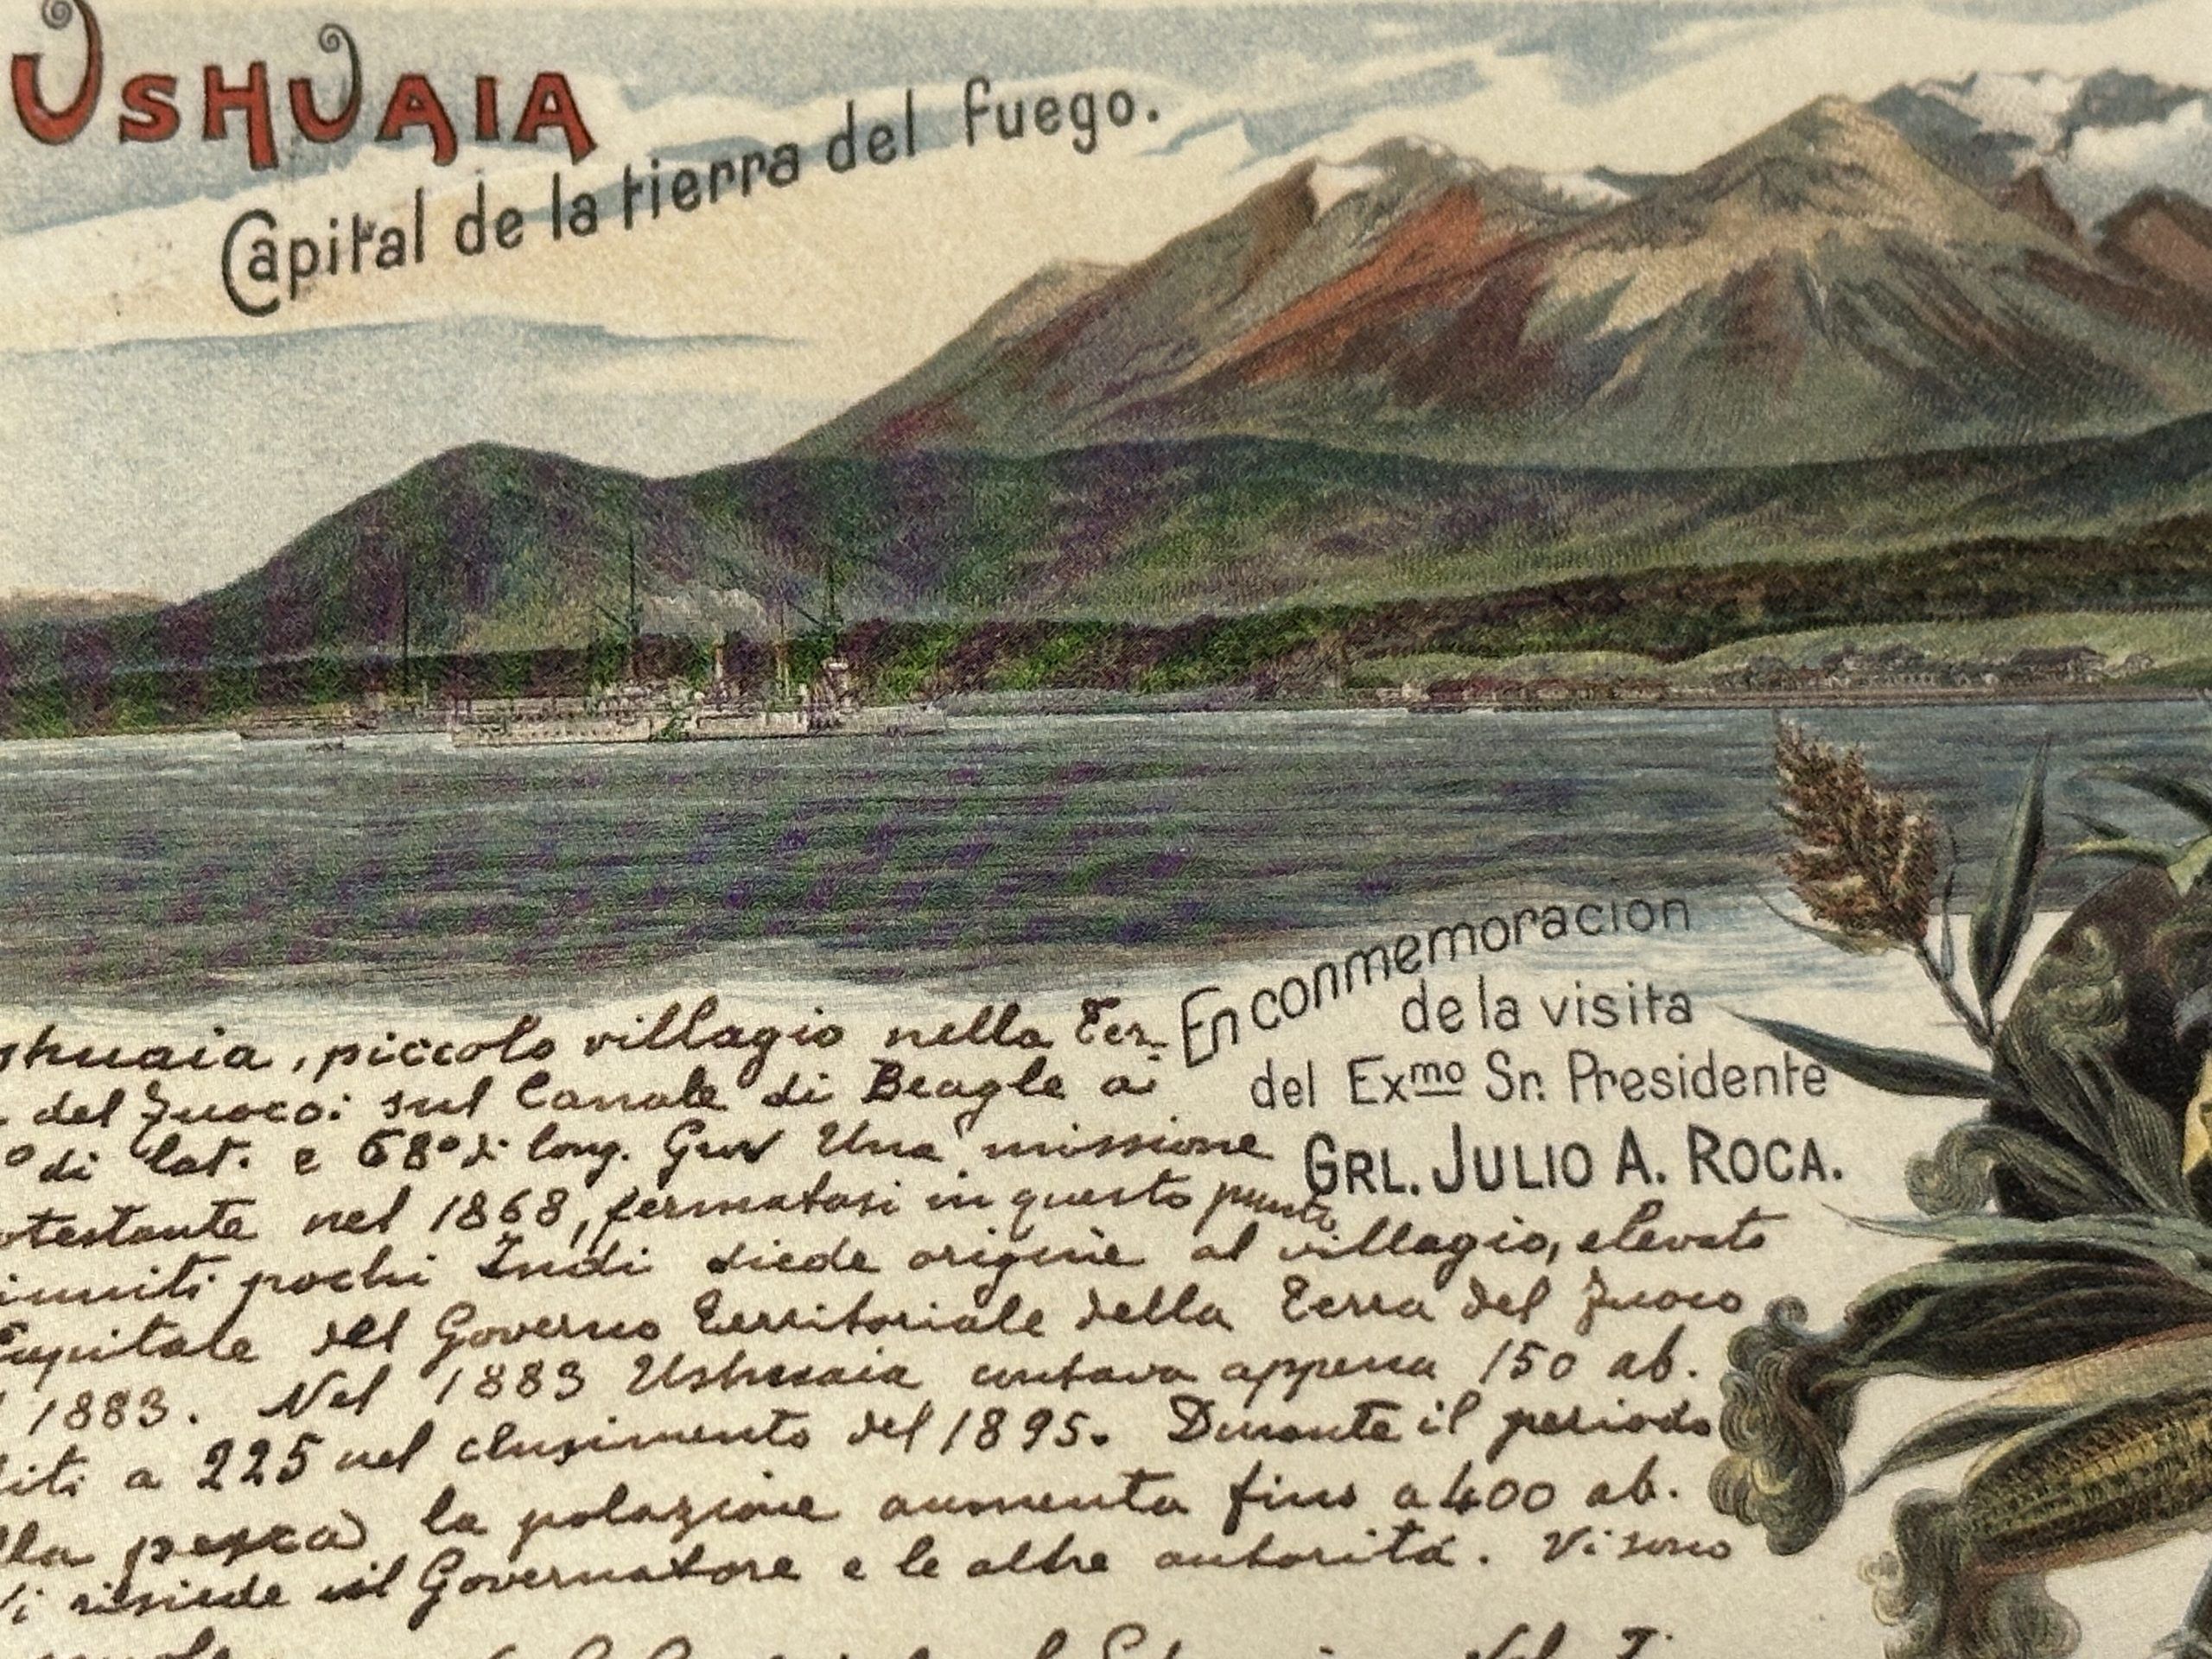 USHUAIA
Capital de la tierra del fuego.
En conmemoracion
de la visita
del Exmo Sr. Presidente
GRL. JULIO A. ROCA.
shuaia, piccolo villagio nella Ter-
del Fuoco: sul Canale di Beagle a
° di lat. e 68° di long. Una missione
otestante nel 1868, fermatasi in questo punto
iuniti pochi Indi diede origine al villagio, elevato
Capitale del Governo Territoriale della Terra del Fuoco
1883. Nel 1883 Ushuaia contava appena 150 ab.
liti a 225 nel del 1895. Durante il periodo
lla pesca la polazione aumenta fino a 400 ab.
Vi risiede il Governatore e le altre autorità. Vi sono